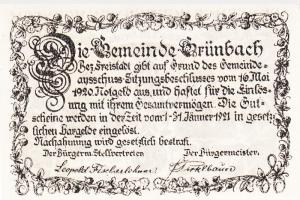 Die Gemeinde Grünbach
Bez. Freistadt gibt auf Grund des Gemeinde-
ausschuss-Sitzungsbeschlusses vom 16. Mai
1920 Notgeld aus, und haftet für die Einlös-
ung mit ihrem Gesamtvermögen. Die Gut-
scheine werden in der Zeit vom 1-31. Jänner 1921 in gesetz-
lichen Bargelde eingelöst.
Nachahmung wird gesetzlich bestraft.
Der Bürgerm. Stellvertreter. Der Bürgermeister.
Leopold